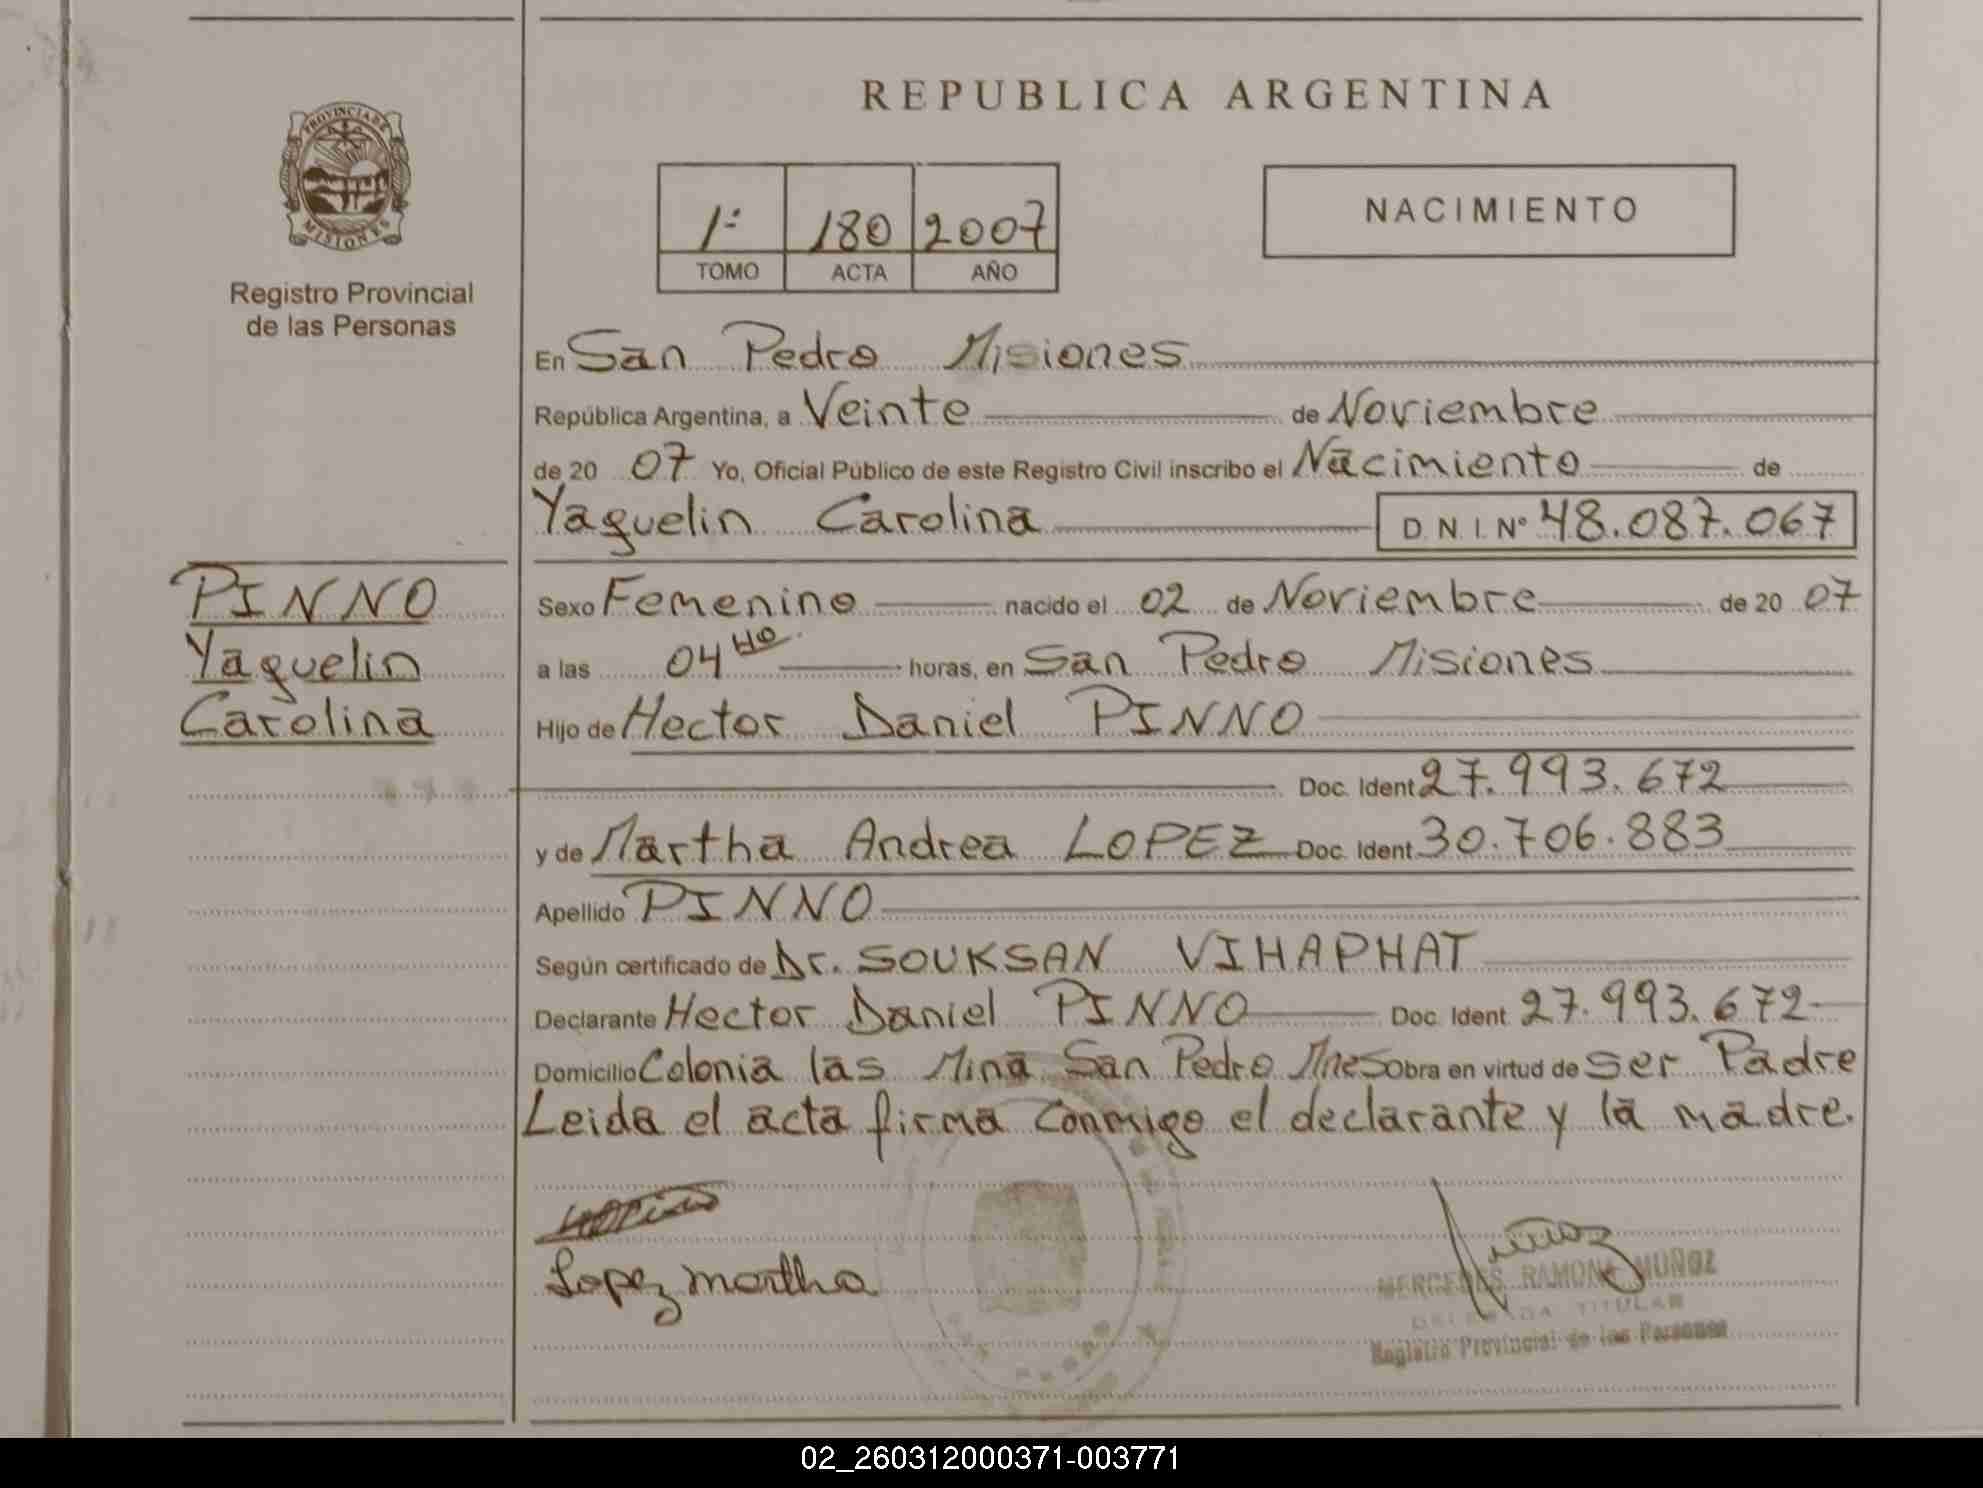 REPUBLICA ARGENTINA
PROVINCIA DE
MISIONES
Registro Provincial
de las Personas
1º 180 2007
TOMO ACTA AÑO
NACIMIENTO
En San Pedro Misiones
República Argentina, a Veinte de Noviembre
de 20 07 Yo, Oficial Público de este Registro Civil inscribo el Nacimiento de
Yaquelin Carolina D.N.I.Nº 48.087.067
PINNO
Yaquelin
Carolina
Sexo Femenino nacido el 02 de Noviembre de 20 07
a las 04 horas, en San Pedro Misiones
Hijo de Hector Daniel PINNO
Doc. Ident 27.993.672
y de Martha Andrea LOPEZ Doc. Ident 30.706.883
Apellido PINNO
Según certificado de Dr. SOUKSAN VIHAPHAT
Declarante Hector Daniel PINNO Doc. Ident 27.993.672
Domicilio Colonia las Mina San Pedro Mnes Obra en virtud de ser Padre
Leida el acta firma conmigo el declarante y la madre.
Lopez martha
MERCEDES RAMONA MUÑOZ
DELEGADA TITULAR
Registro Provincial de las Personas
02_260312000371-003771